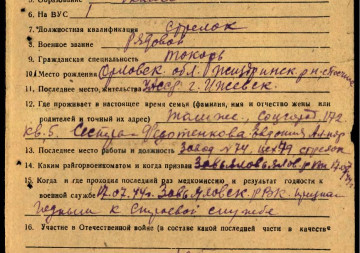 6. На ВУС
7. Должностная квалификация Стрелок
8. Военное звание рядовой
9. Гражданская специальность токарь
10. Место рождения Орловск. обл. Жиздринск. р-н
11. Последнее место, жительства УАССР г. Ижевск
12. Где проживает в настоящее время семья (фамилия, имя и отчество жены или
родителей и точный их адрес) Там же, Соцгород, 142
кв. 5. Сестра
13. Последнее место работы и должность завод №74 цех
14. Каким райгорвоенкоматом и когда призван Завьяловским рвк
15. Когда и где проходил последний раз медкомиссию и результат годности к
военной службе 17.07.44 г. Завьяловск. РВК. признан
годным к строевой службе
16. Участие в Отечественной войне (в составе какой последней части в качестве